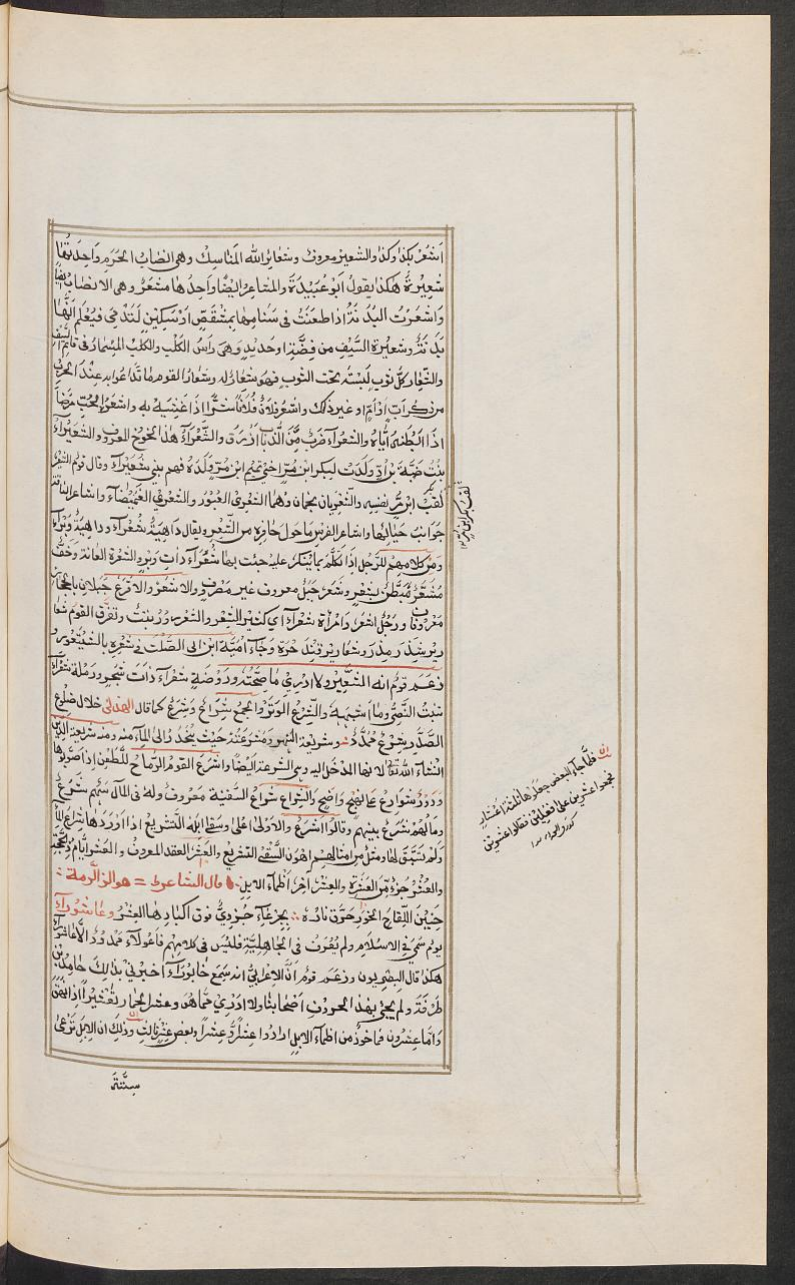 اَشعُرْ بكذا وكذا والشعير معروف وشعاير الله المناسك وهى انصاب الحَرَم وَاحِدتُها
شعِيْرةٌ هكذا يقول ابَوْعُبَيدَة والمشاعِرُ ايضًا وَاحِدُها مشعَرٌ وهى الانصاب ايضا
وَاشعَرْتُ البُدْنَةَ اذا طعَنْتَ فى سَنامِها بمِشْقَصٍ اَوْسِكيْنٍ لتُدْمِىَ فيُعلَم انَّها
بَدَنَةٌ وشعِيْرة السَّيْفِ من فِضَّةٍ اوحَدِيْدٍ وَهىَ رَاسُ الكَلْب والكلْب المِسْمار فى قايم السَّيْف
والشِّعَار كلُّ ثوبٍ لَبِسْتَه تحت الثوبِ فهو شعارٌ له وشعارُ القوم ما تدَاعَوا به عِنْدَ الحرْب
من ذكر اَبٍ اَوْ اُمٍّ او غيرِ ذلك واشعَرَ فلانٌ فُلانًا شَرًّا اذا غشِيَه به واشعَرَه الحُبّ مَرَضًا
اذا اَبْطنَهُ ايّاه والشعراء ضَربٌ مِّنَ الذّباب ازرَق والشَّعْرَآءُ هٰذا الخوخ المعروف والشُّعَيْرَاءُ
بنْتُ ضَبَّةَ بْن اُدٍّ وَلَدَتْ لبكر ابن مُرٍّ اخى تميم ابن مُرٍّ وَلَدَهُ فهم بنو شُعَيْرَآء وقال قوم الشعيرآء
لَقبُ ابْن مُرٍّ نفسِه والشِّعْرَيان نجمان وهُما الشِّعْرَى العَبُوْر والشعرى الغُمَيْصَآء واشاعر الناقة
جَوَانب حَيَائِها واشاعر الفرسِ ماحَول حَافِرِه من الشَّعر ويقال دَاهِيَةٌ شَعْرآء وداهِيَةٌ وَبْرآء
وَمن كلامهم للرّجُل اذا تكلَّم بما يُنكَر عليه جئت بها شَعْرَآءَ ذات وَبَرٍ والشعرة العانة وخُفٌّ
مُشعَرٌ مُبَطَّن بشعَرٍ وشَعَر جَبَلٌ معروف غير مصرُوفٍ والاشعَرُ والاقرَعُ جَبَلان بالحجاز
مَعْرُوفان ورَجُلٌ اشعَر وَامْرأة شعْرَآء اى كثير الشعر
وزعَم قوم انه الشَّعِيْر ولا ادرِىْ ما صِحَّتُه ورَوْضَةٌ شعْرآء ذات شجَرٍ ورملة شعْرآء
تنبُت النَّصِىَّ وما اشبَهه والشِّرْعُ الوَتَرُ والجمْع شِرَاعٌ وَشِرَعٌ كما قال الهذلى خلال ضلُوع
الصَّدْرِ شِرْعٌ مُمَدَّدُ وشريعة النَّهر ومَشرَعَتُهُ حَيثُ يُنْحَدَر الى المآء منه ومنه شريعة الدِّيْن
ان شآء الله تعالى لانها المدخل اليه وهى الشرعة ايضًا واشرَع القوم الرِّماحَ للطَّعْن اذا صَوَّبُوها
وَدُوْرٌ شوارع على نهْجٍ واحِدٍ والشِّراع شراعُ السَّفيْنة معروف وله فى المال سَهْم شَرَعٌ
وما لَهُم شَرَعٌ بينهم وقالوا اشرَعُ والاَوْلى اعْلى وسَقى اِبِلَه التَّشريعَ اذا اَوْرَدَها شرِيعَة المآء
وَلَم يَسْتَقِ لها ومثلٌ من امثالهم اهوَنُ السَّقْى التشريعُ والعَشر العقد المعروف والعَشر ايّام ذى الحجّة
والعُشر جُزْءٌ مِّن العَشَرَة والعِشْر آخر اظمآء الابل قال الشاعر = هو ذو الرمة
حنِيْنَ اللِّقاحِ الخُوْرِ حَرَّق نارُه بجَرْعَآءَ حُزْوَى فوق اكبادِها العِشْرُ وعاشورآء
يوم سُمِّىَ فى الاسلام ولم يُعْرَف فى الجاهليَّة وليْسَ فى كلامهم فاعُولآء ممدود الا عاشورآء
هكذا قال البصريون وزعَم قوم انَّ ابن الاعرابى انه سَمِع خابوُرَآء اخبرنى بذالك حامد بن
طرفة ولم يجِئ بهذا الحرف اصْحابنا ولا ادْرِىْ ما هو وعشر الحِمار تعْشيرًا اذا نهَقَ
وَامّا عِشرون فماخوذٌ من اظمآء الابل ارادوا عِشْرًا وَّعِشْرًا وبعض عِشْرٍ ثالثٍ وذلك ان الابل ترعى
ستة
لَقَبُ بكر ابن مُرّ
فلمّا جآء البعض جعلوها ثلاثة اعشار
فجمعوا عشرين